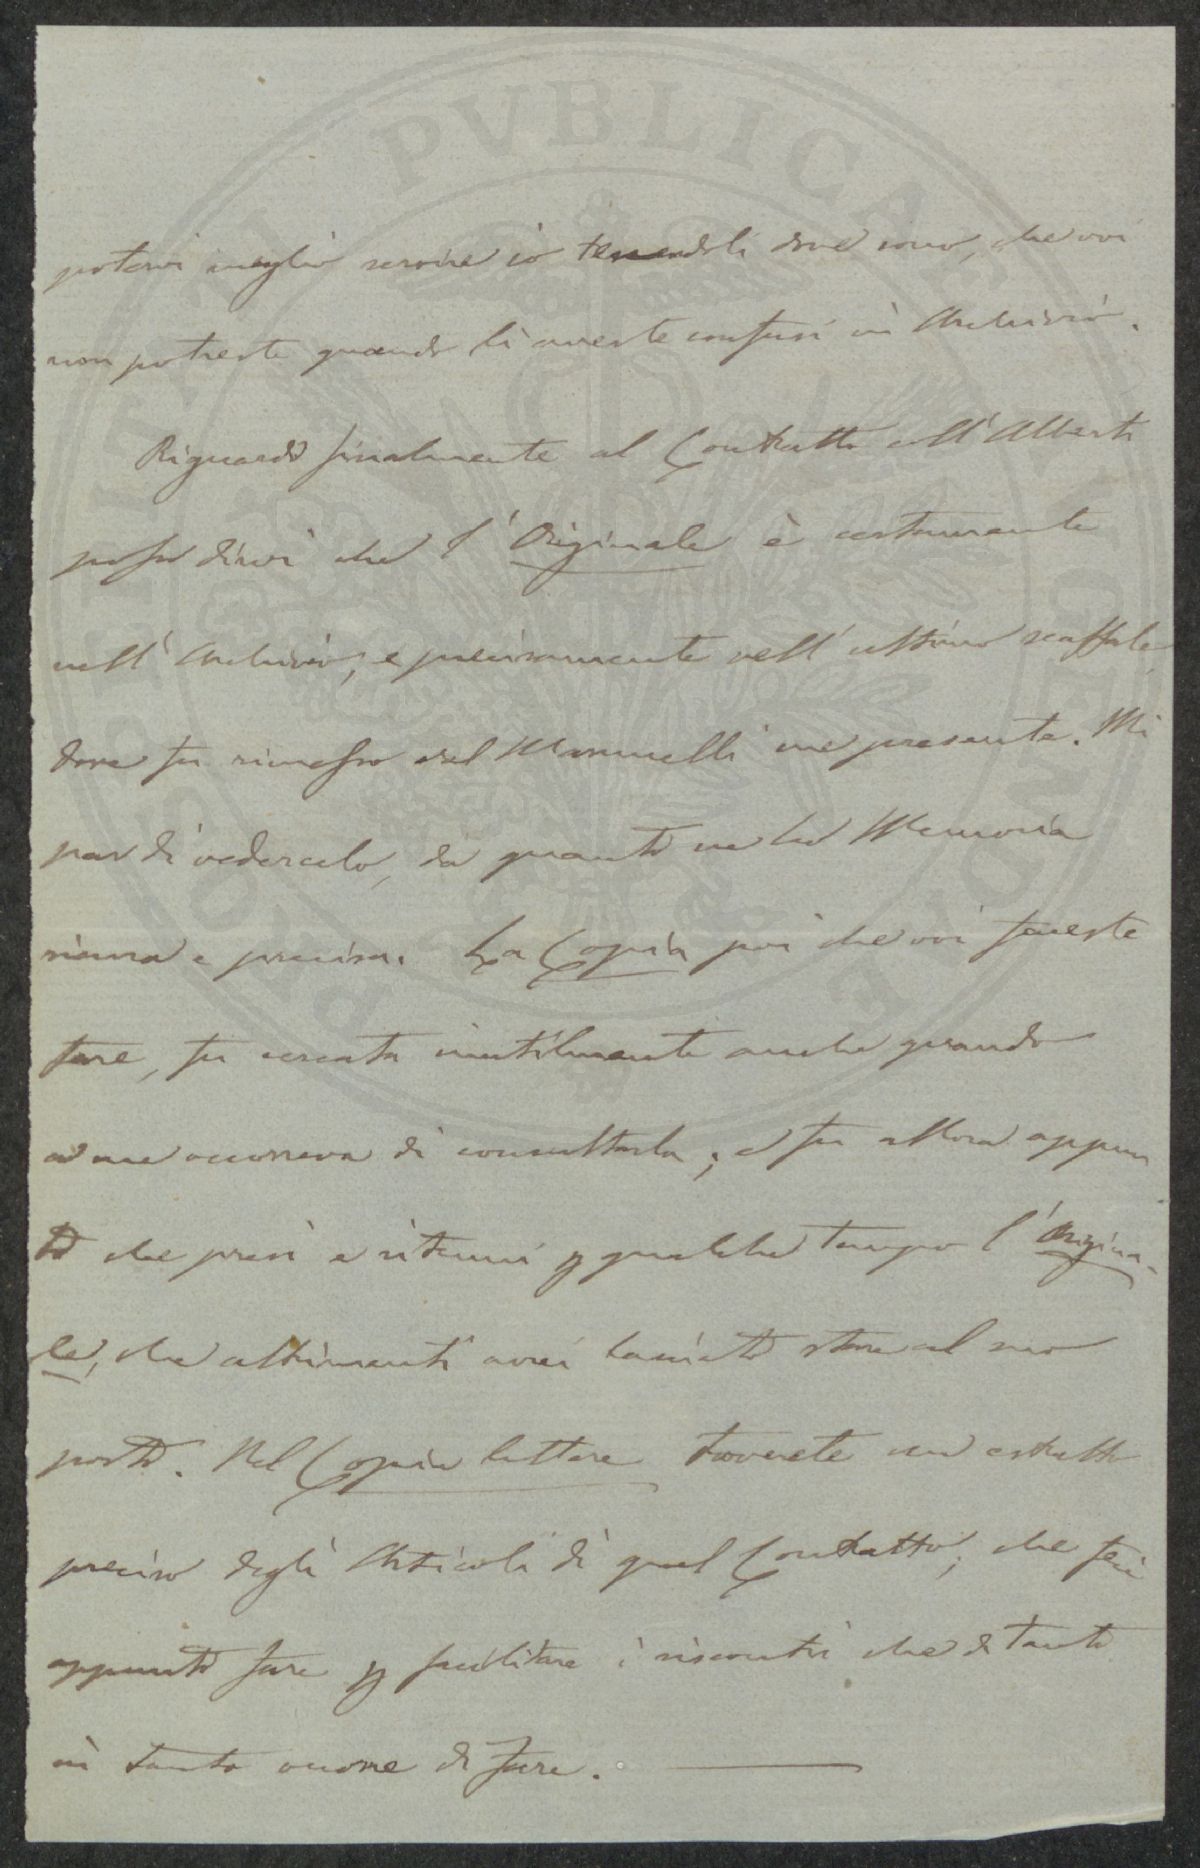 PROSPERITATI PVBLICAE AVGENDAE
potervi meglio servire io tenendoli dove sono, che voi
non potreste quando li aveste confusi in Archivio.
Riguardo finalmente al Contratto coll'Alberti
posso dirvi che l'Originale è certamente
nell'Archivio, e precisamente nell'ultimo scaffale,
dove fu rimesso dal me presente. Mi
par di vedercelo, da quanto ne ho Memoria
sicura e precisa. La Copia poi che voi faceste
fare, fu cercata inutilmente anche quando
a me occorreva di consultarla; e fu allora appun
to che presi e ritenni p qualche tempo l'Origina-
le, che altrimenti avrei lasciato stare al suo
posto. Nel Copia lettere troverete un estratto
preciso degli Articoli di quel Contatto, che feci
appunto fare p facilitare i riscontri che di tanto
in tanto occorre di fare.